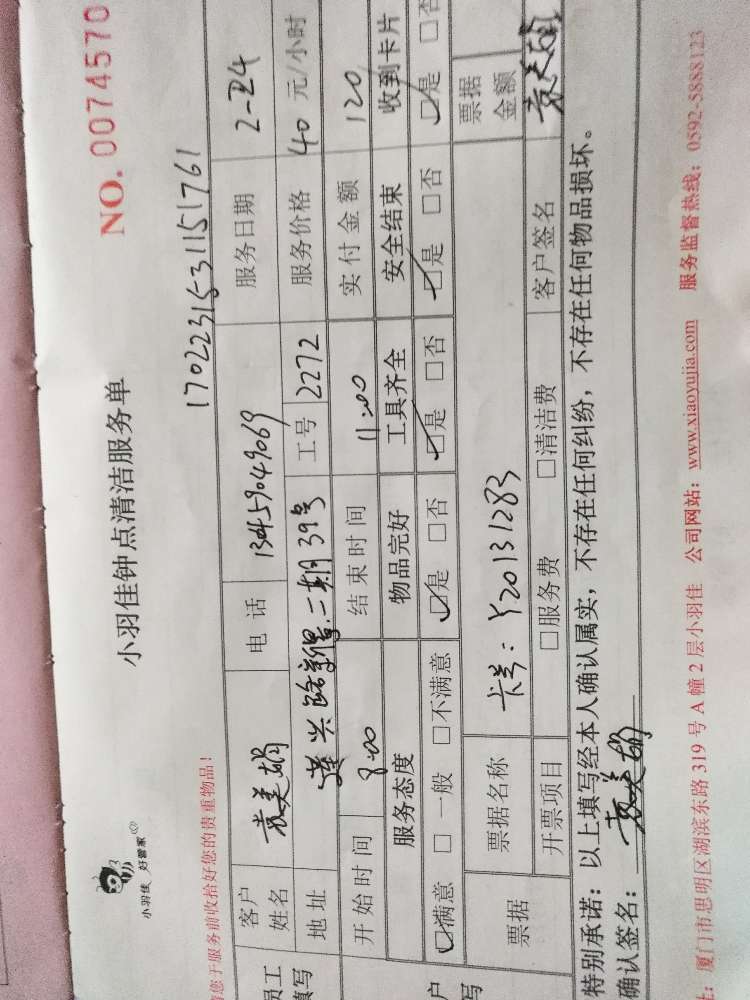 小羽佳 好管家
小羽佳钟点清洁服务单
NO. 0074570
1702231531151761
您于服务前收拾好您的贵重物品！
员工填写
客户姓名 袁美娟 电话 13459049069 服务日期 2-24
地址 莲兴路新景二期39号 工号 2272 服务价格 40元/小时
开始时间 8:00 结束时间 11:00 实付金额 120
服务态度 物品完好 工具齐全 安全结束 收到卡片
☑满意 □一般 □不满意 ☑是 □否 ☑是 □否 ☑是 □否 ☑是 □否
户
写
票据 票据名称 卡号：Y20131283 票据金额
开票项目 □服务费 □清洁费 客户签名 袁美娟
特别承诺：以上填写经本人确认属实，不存在任何纠纷，不存在任何物品损坏。
确认签名：袁美娟
址：厦门市思明区湖滨东路 319 号 A 幢 2 层小羽佳 公司网站：www.xiaoyujia.com 服务监督热线：0592-5888123